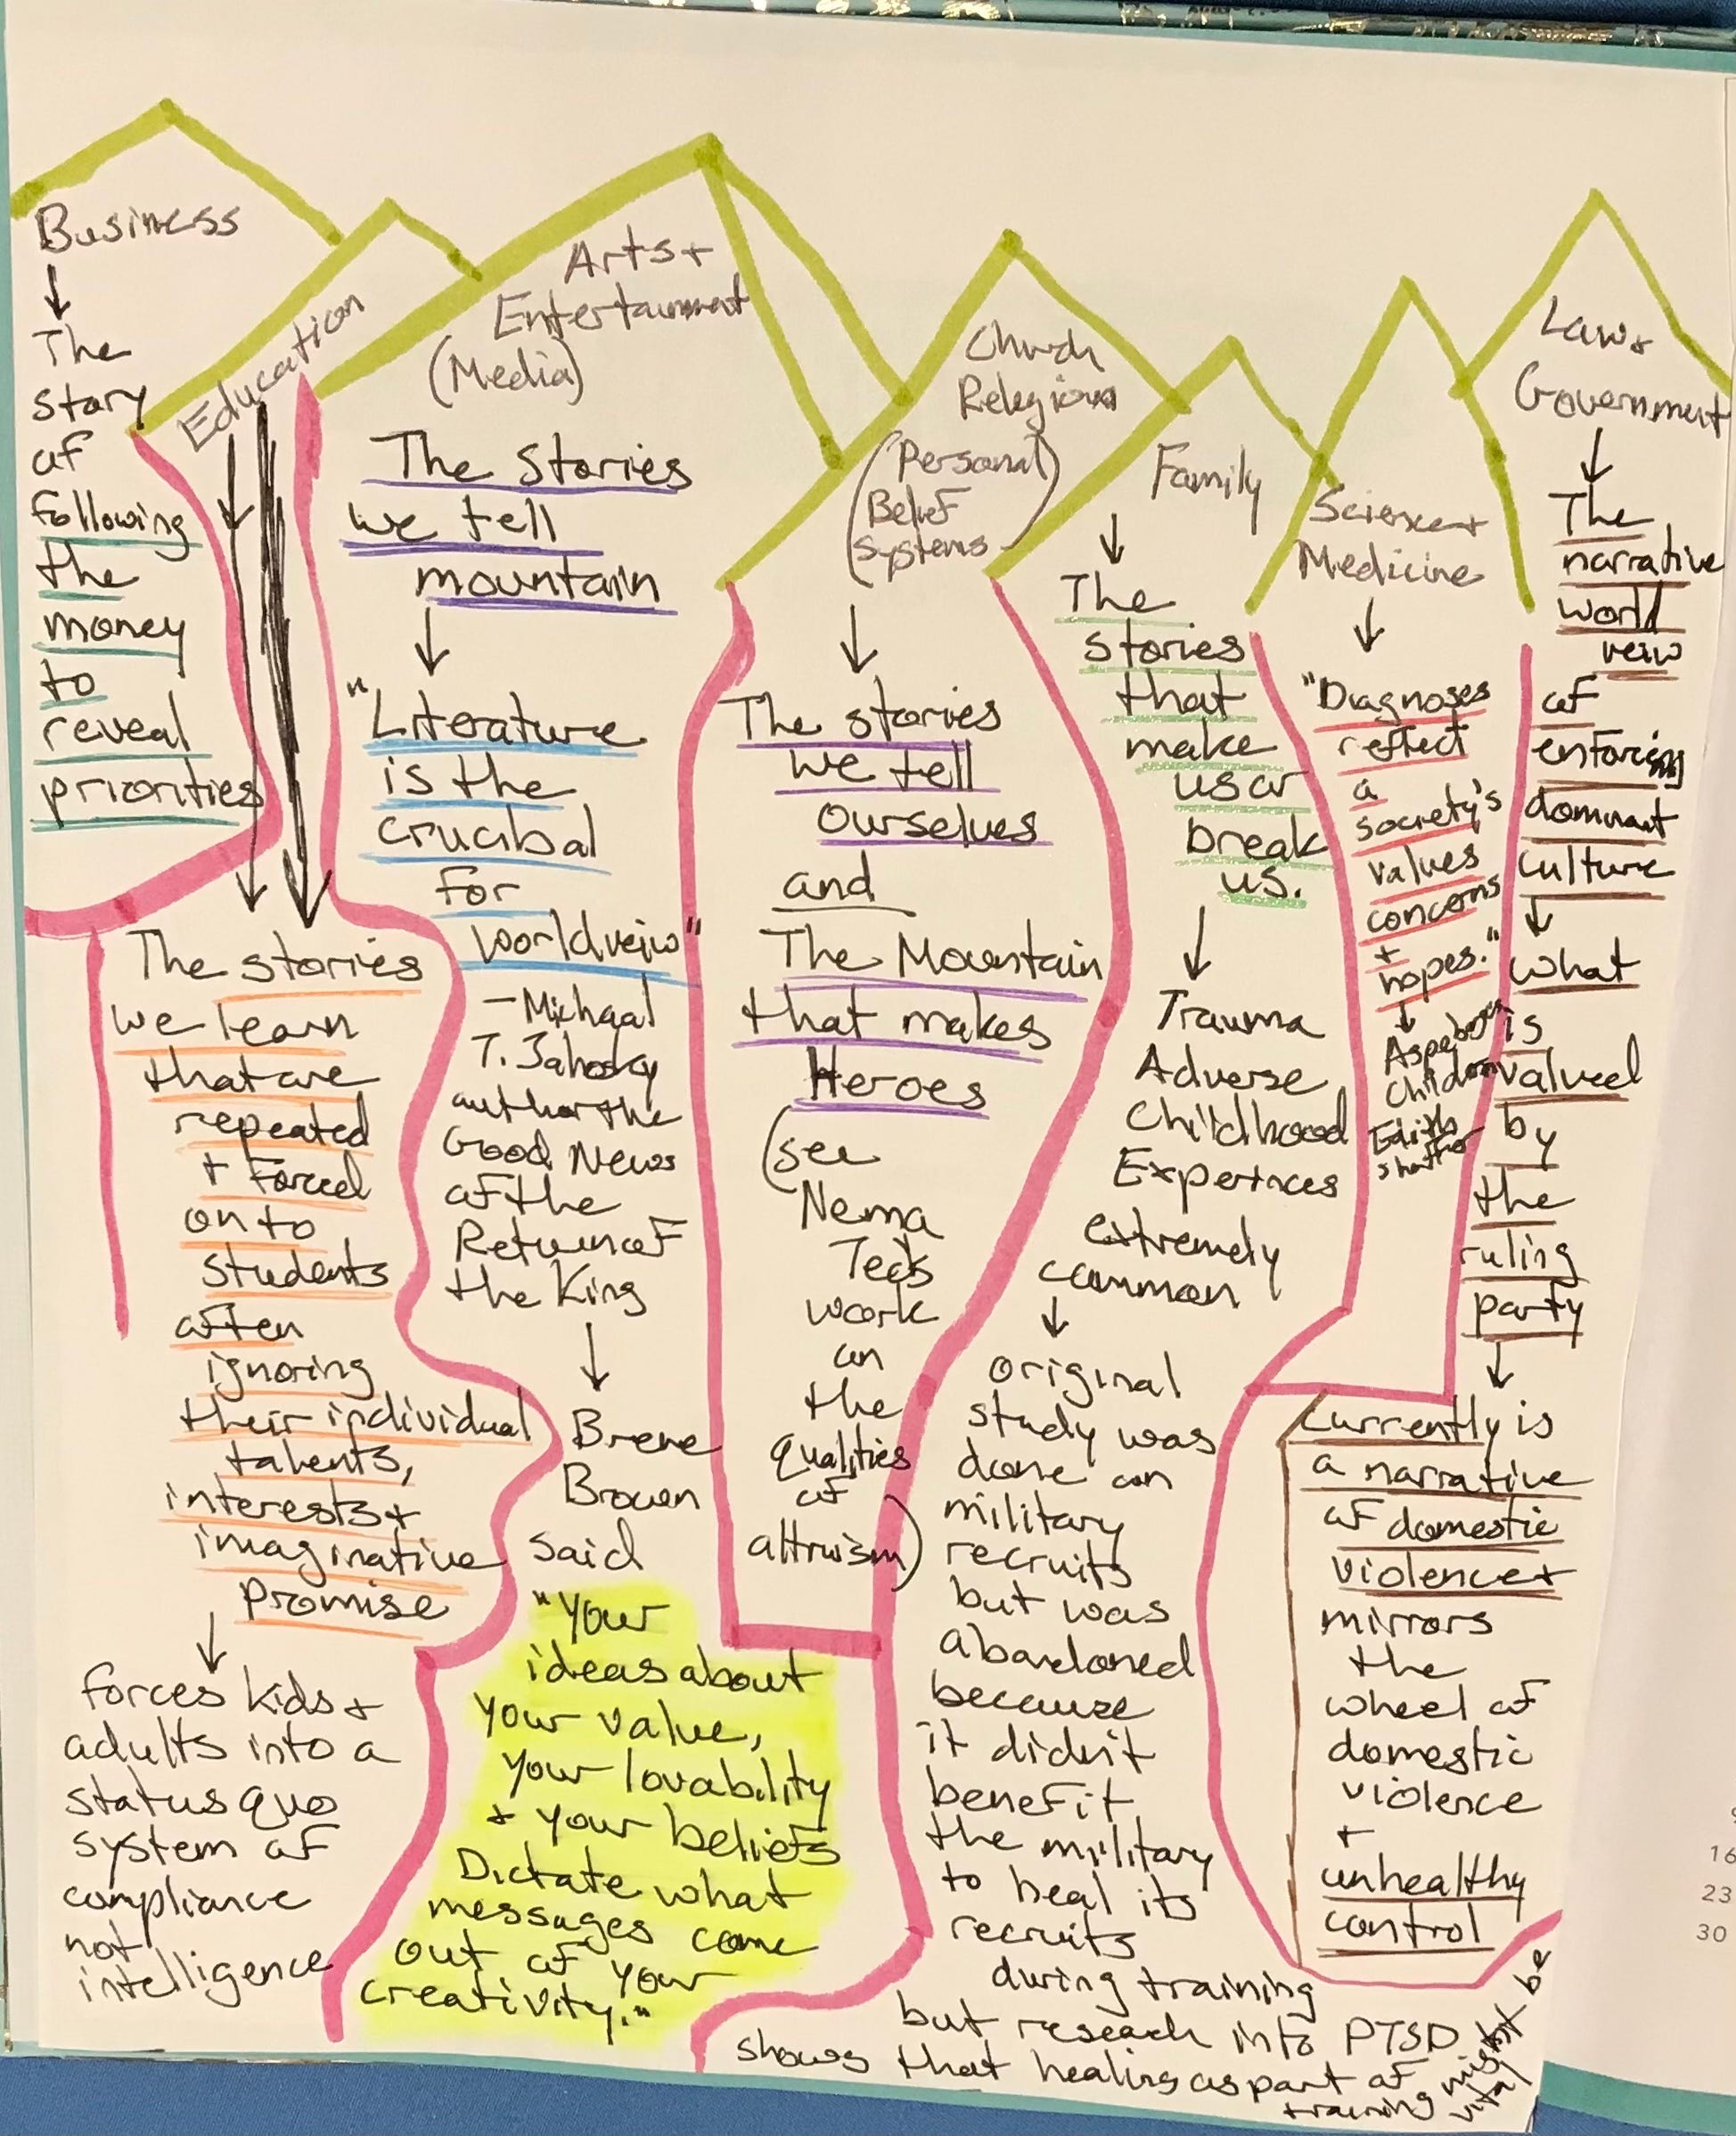 Business
The
story
of
following
the
money
to
reveal
priorities
Education
The stories
we learn
that are
repeated
+ Forced
on to
students
often
ignoring
their individual
talents,
interests +
imaginative
promise
forces kids +
adults into a
status quo
system of
compliance
not
intelligence
Arts +
Entertainment
(Media)
The Stories
we tell
mountain
"Literature
is the
crucibal
for
worldveiw"
- Michael
T. Jahosky
author the
Good News
of the
Return of
the King
Brene
Brown
said
"Your
ideas about
your value,
your lovability
+ your beliefs
Dictate what
messages come
out of your
creativity."
Church
Religion
(Personal
Belief
Systems)
The stories
we tell
ourselves
and
The Mountain
that makes
Heroes
(see
Nema
Tecs
work
on
the
qualities
of
altruism)
Family
The
stories
that
make
us or
break
us.
Trauma
Adverse
Childhood
Experinces
extremely
common
original
study was
done on
military
recruits
but was
abandoned
because
it didn't
benefit
the military
to heal its
recruits
during training
but research into PTSD
shows that healing as part of
training might be
vital
Science +
Medicine
"Diagnoses
reflect
a
society's
values
concerns
+
hopes."
Children
Edith
Law &
Government
The
narrative
world
veiw
of
enforcing
dominant
culture
what
is
valued
by
the
ruling
party
Currently is
a narrative
of domestic
violence +
mirrors
the
wheel of
domestic
violence
+
unhealthy
control
16
23
30